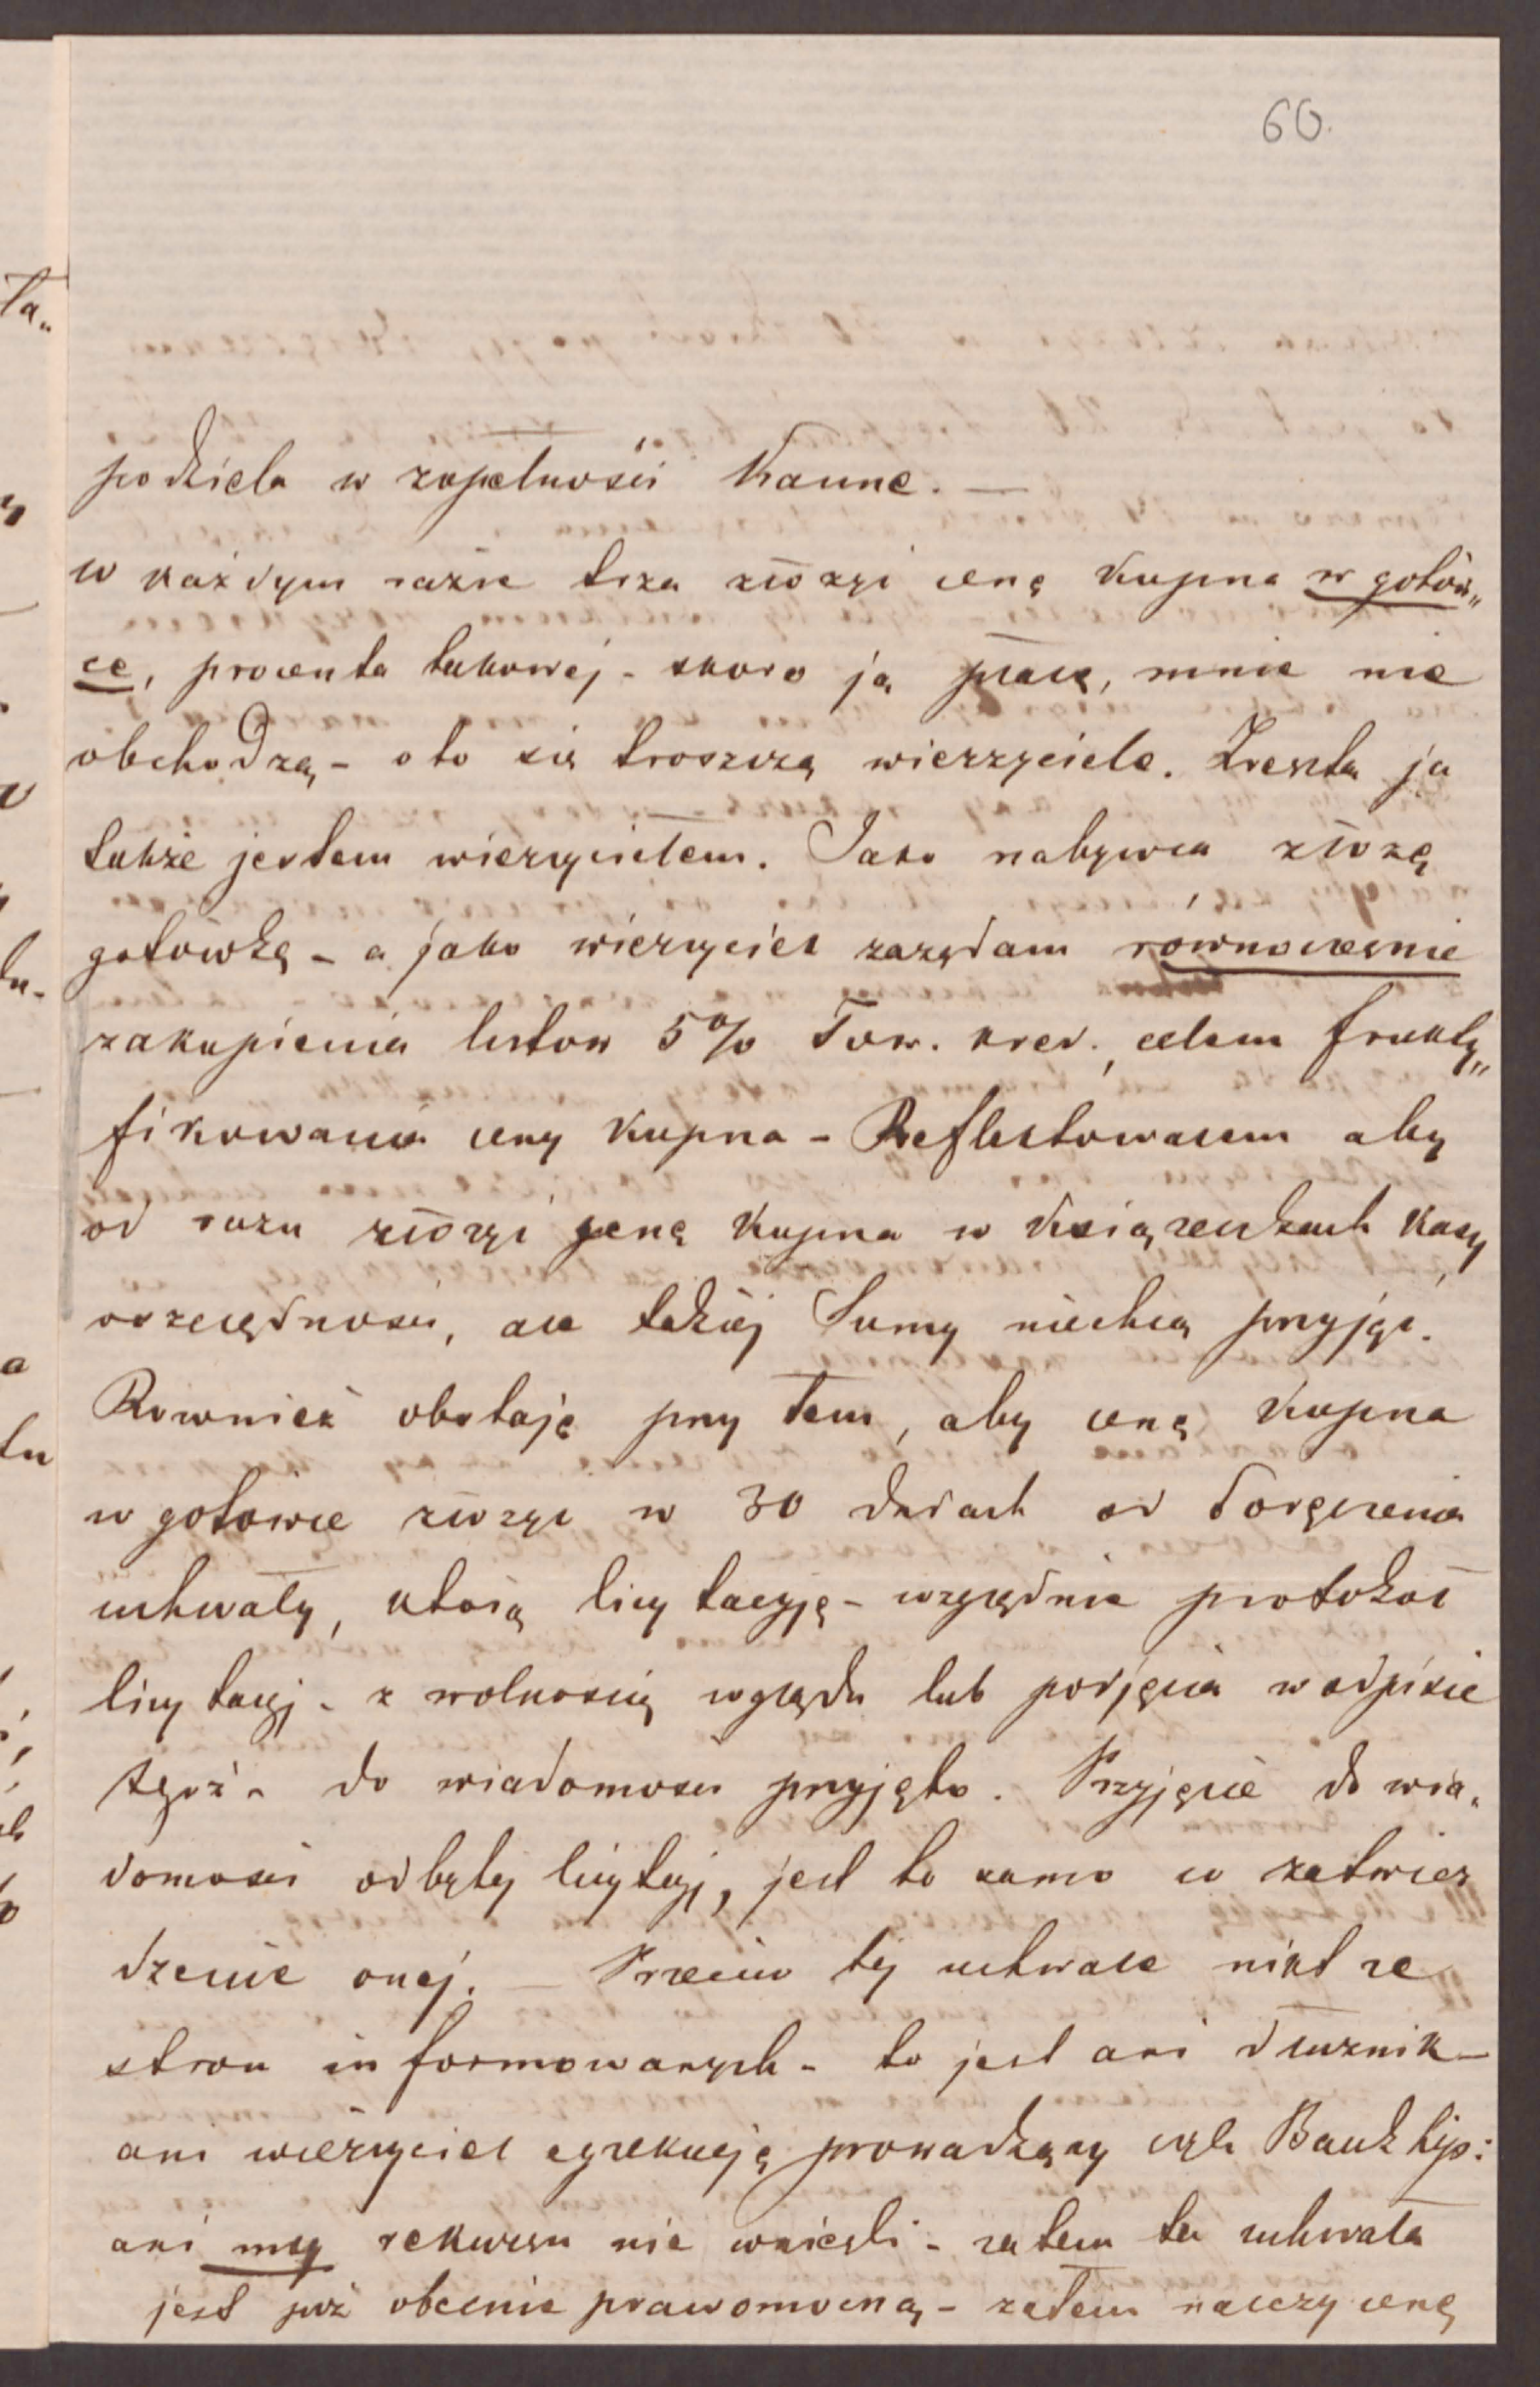 60.
podziela w zupełności Kanne. —
w każdym razie trza złożyć cenę kupna w gotów„
ce, procenta takowej - skoro ją płacę, mnie nie
obchodzą - o to się troszczą wierzyciele. Zresztą ja
także jestem wierzycielem. Jako nabywca złożę
gotówkę - a jako wierzyciel zażądam równocześnie
zakupienia listów 5% Tow. kred., celem frukty„
fikowania ceny kupna - Reflektowałem aby
od razu złożyć cenę kupna w książeczkach kasy
oszczędności, ale takiej Sumy niechcą przyjąć.
Również obstaję przy tem, aby cenę kupna
w gotówce złożyć w 30 dniach od doręczenia
uchwały, którą licytacyję - względnie protokół
licytacyj - z wolnością wglądu lub podjęcia w odpisie
tegoż - do wiadomości przyjęto. Przyjęcie do wia„
domości odbytej licytacyj, jest to samo co zatwier
dzenie onej. — Przeciw tej uchwale nikt ze
stron informowanych - to jest ani dłużnik —
ani wierzyciel egzekucję prowadzący czyli Bank hip:
ani my rekursu nie wnieśli - zatem ta uchwała
jest już obecnie prawomocną - zatem należy cenę